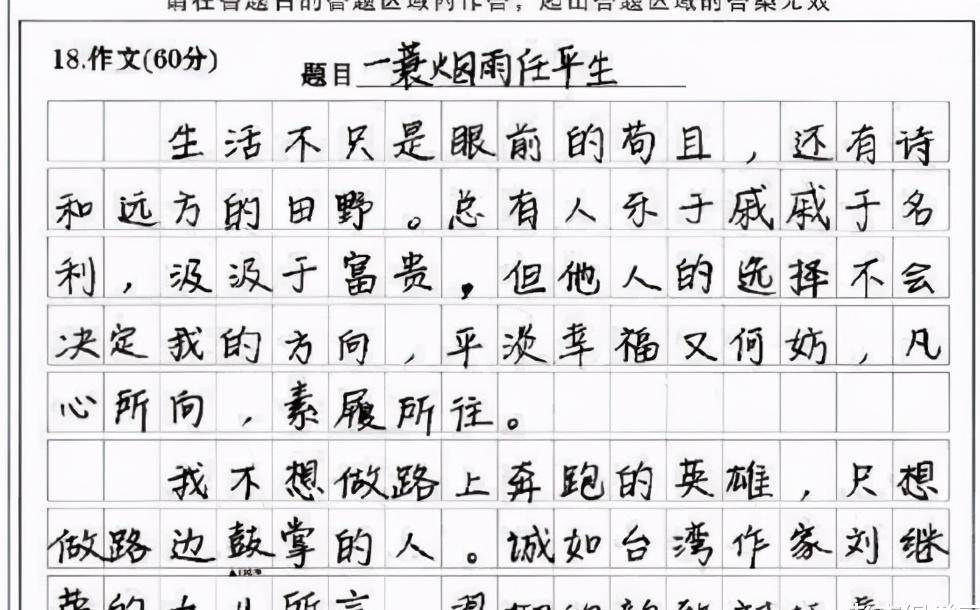 请在各题目的答题区域内作答，超出答题区域的答案无效
18.作文(60分)
题目 一蓑烟雨任平生
生活不只是眼前的苟且，还有诗
和远方的田野。总有人乐于戚戚于名
利，汲汲于富贵，但他人的选择不会
决定我的方向，平淡幸福又何妨，凡
心所向，素履所往。
我不想做路上奔跑的英雄，只想
做路边鼓掌的人。诚如台湾作家刘继
荣的女儿所言